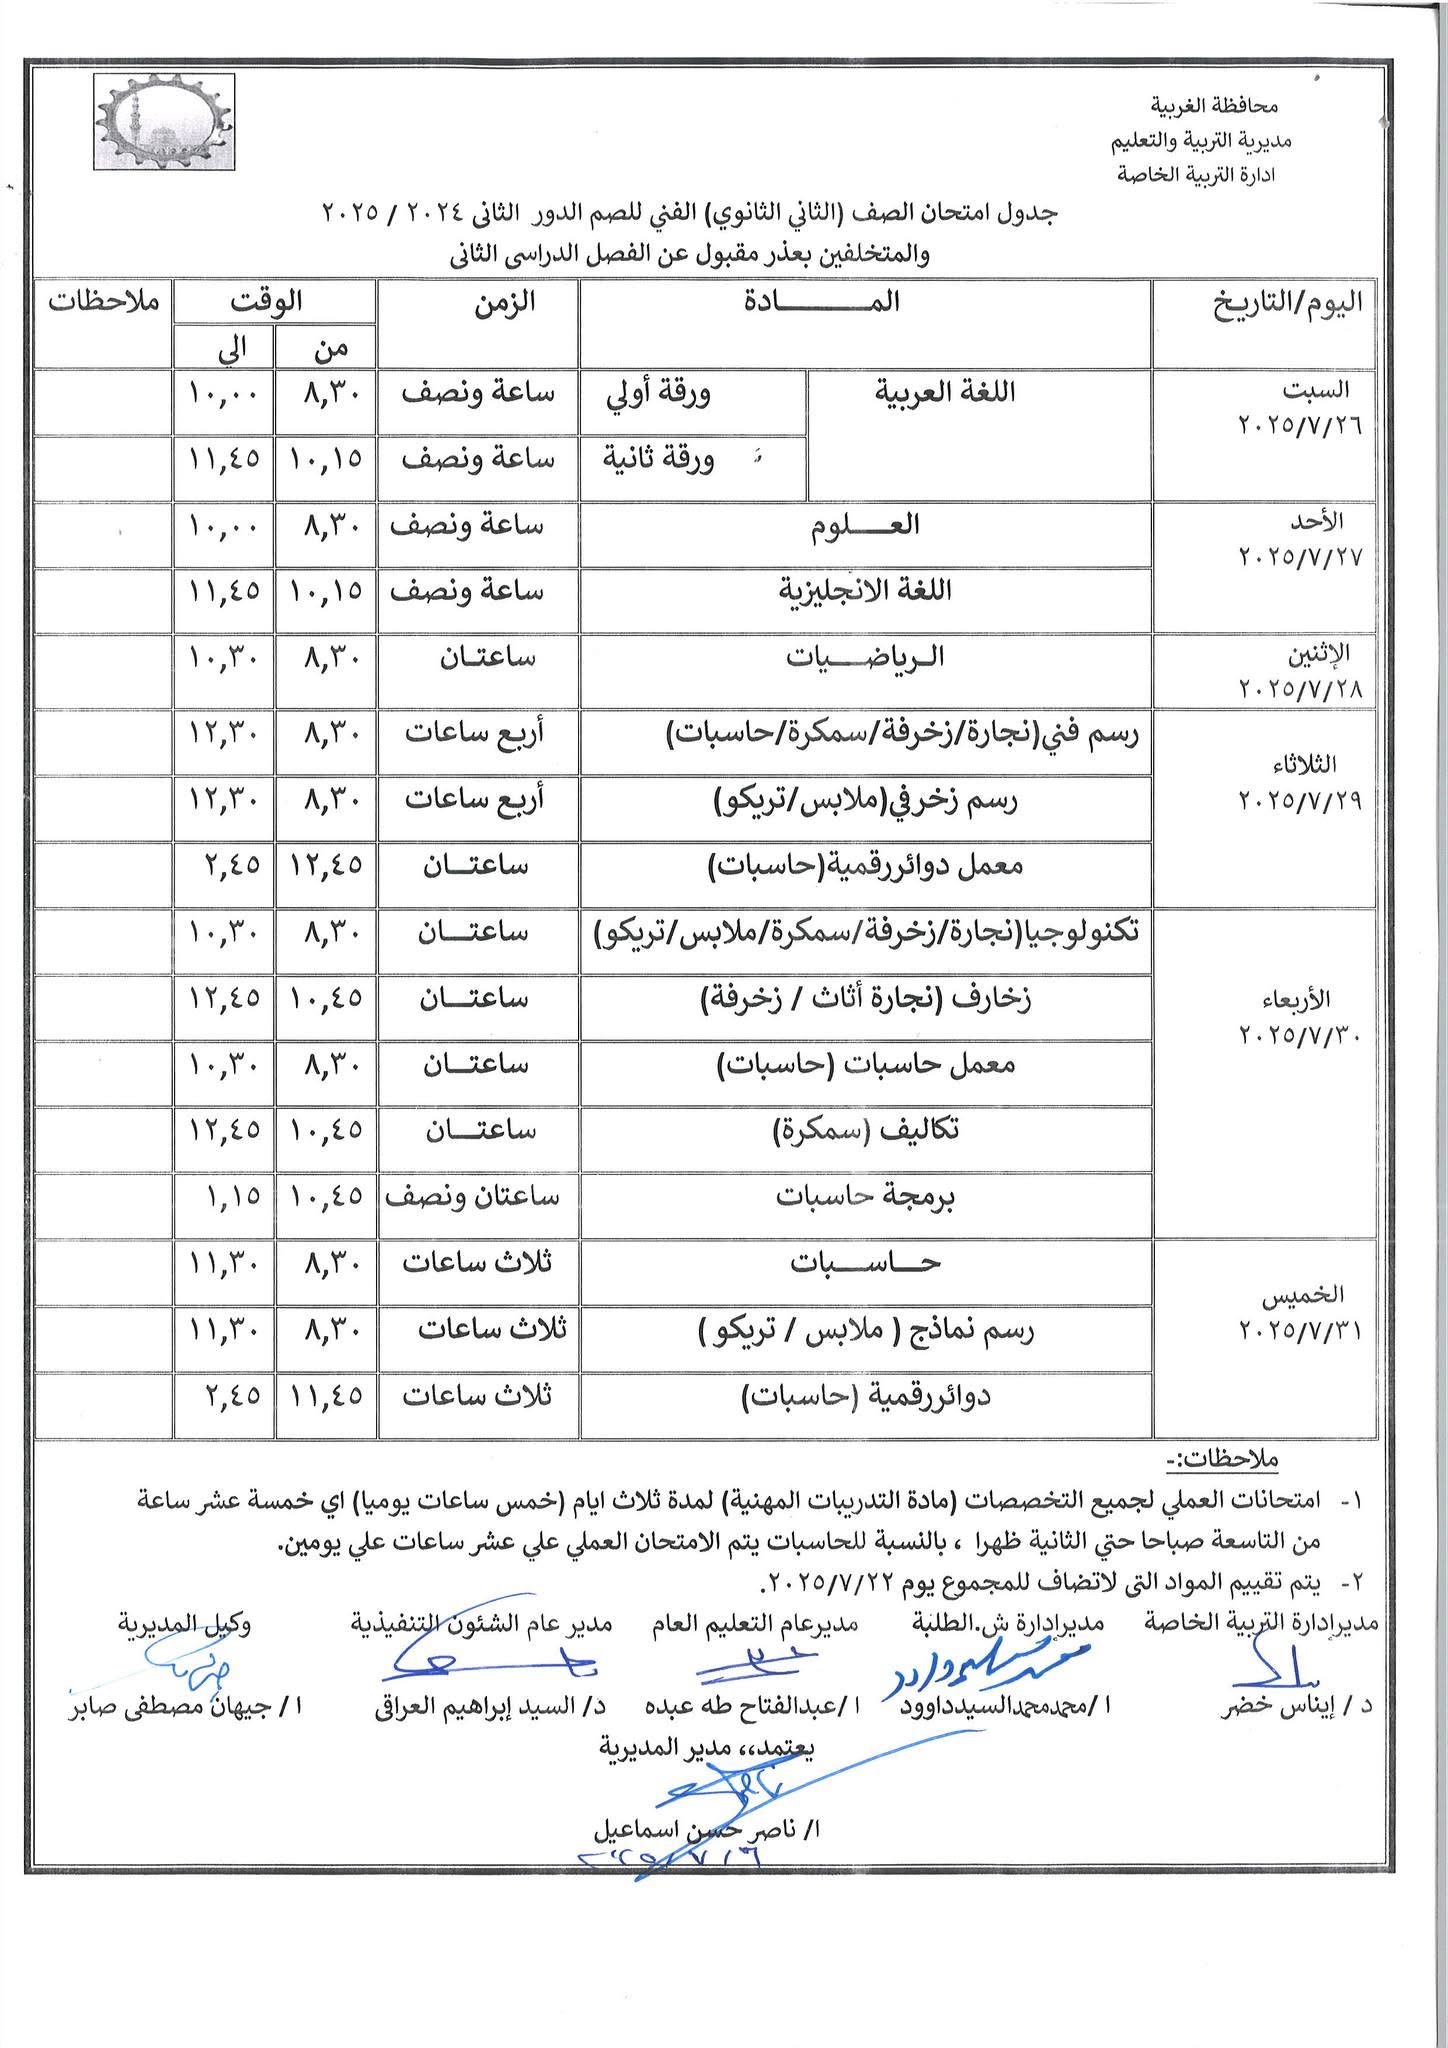 محافظة الغربية
مديرية التربية والتعليم
ادارة التربية الخاصة
جدول امتحان الصف (الثاني الثانوي) الفني للصم الدور الثانى ٢٠٢٤ / ٢٠٢٥
والمتخلفين بعذر مقبول عن الفصل الدراسى الثانى
اليوم/التاريخ المـــــــادة الزمن الوقت ملاحظات
من الي
السبت ٢٠٢٥/٧/٢٦ اللغة العربية ورقة أولي ساعة ونصف ٨,٣٠ ١٠,٠٠
ورقة ثانية ساعة ونصف ١٠,١٥ ١١,٤٥
الأحد ٢٠٢٥/٧/٢٧ العـــلوم ساعة ونصف ٨,٣٠ ١٠,٠٠
اللغة الانجليزية ساعة ونصف ١٠,١٥ ١١,٤٥
الإثنين ٢٠٢٥/٧/٢٨ الرياضـــيات ساعتـان ٨,٣٠ ١٠,٣٠
الثلاثاء ٢٠٢٥/٧/٢٩ رسم فني(نجارة/زخرفة/سمكرة/حاسبات) أربع ساعات ٨,٣٠ ١٢,٣٠
رسم زخرفي(ملابس/تريكو) أربع ساعات ٨,٣٠ ١٢,٣٠
معمل دوائررقمية(حاسبات) ساعتــان ١٢,٤٥ ٢,٤٥
الأربعاء ٢٠٢٥/٧/٣٠ تكنولوجيا(نجارة/زخرفة/سمكرة/ملابس/تريكو) ساعتــان ٨,٣٠ ١٠,٣٠
زخارف (نجارة أثاث / زخرفة) ساعتــان ١٠,٤٥ ١٢,٤٥
معمل حاسبات (حاسبات) ساعتــان ٨,٣٠ ١٠,٣٠
تكاليف (سمكرة) ساعتــان ١٠,٤٥ ١٢,٤٥
برمجة حاسبات ساعتان ونصف ١٠,٤٥ ١,١٥
الخميس ٢٠٢٥/٧/٣١ حــاســـبات ثلاث ساعات ٨,٣٠ ١١,٣٠
رسم نماذج ( ملابس / تريكو ) ثلاث ساعات ٨,٣٠ ١١,٣٠
دوائررقمية (حاسبات) ثلاث ساعات ١١,٤٥ ٢,٤٥
ملاحظات:-
١- امتحانات العملي لجميع التخصصات (مادة التدريبات المهنية) لمدة ثلاث ايام (خمس ساعات يوميا) اي خمسة عشر ساعة
من التاسعة صباحا حتي الثانية ظهرا ، بالنسبة للحاسبات يتم الامتحان العملي علي عشر ساعات علي يومين.
٢- يتم تقييم المواد التى لاتضاف للمجموع يوم ٢٠٢٥/٧/٢٢.
مديرإدارة التربية الخاصة مديرإدارة ش.الطلبة مديرعام التعليم العام مدير عام الشئون التنفيذية وكيل المديرية
د / إيناس خضر ا /محمدمحمدالسيدداوود ا /عبدالفتاح طه عبده د/ السيد إبراهيم العراقى ا / جيهان مصطفى صابر
يعتمد،، مدير المديرية
ا/ ناصر حسن اسماعيل